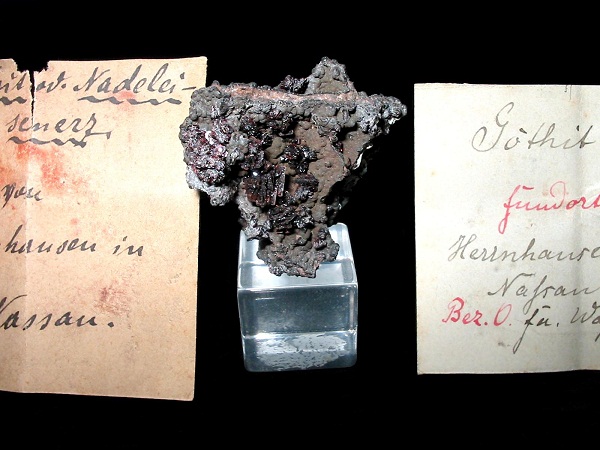 od. Nadelei-
senerz.
von
hausen in
Nassau.
Göthit
Fundort
Herrnhause
Nassau
Bez. O. fu. W